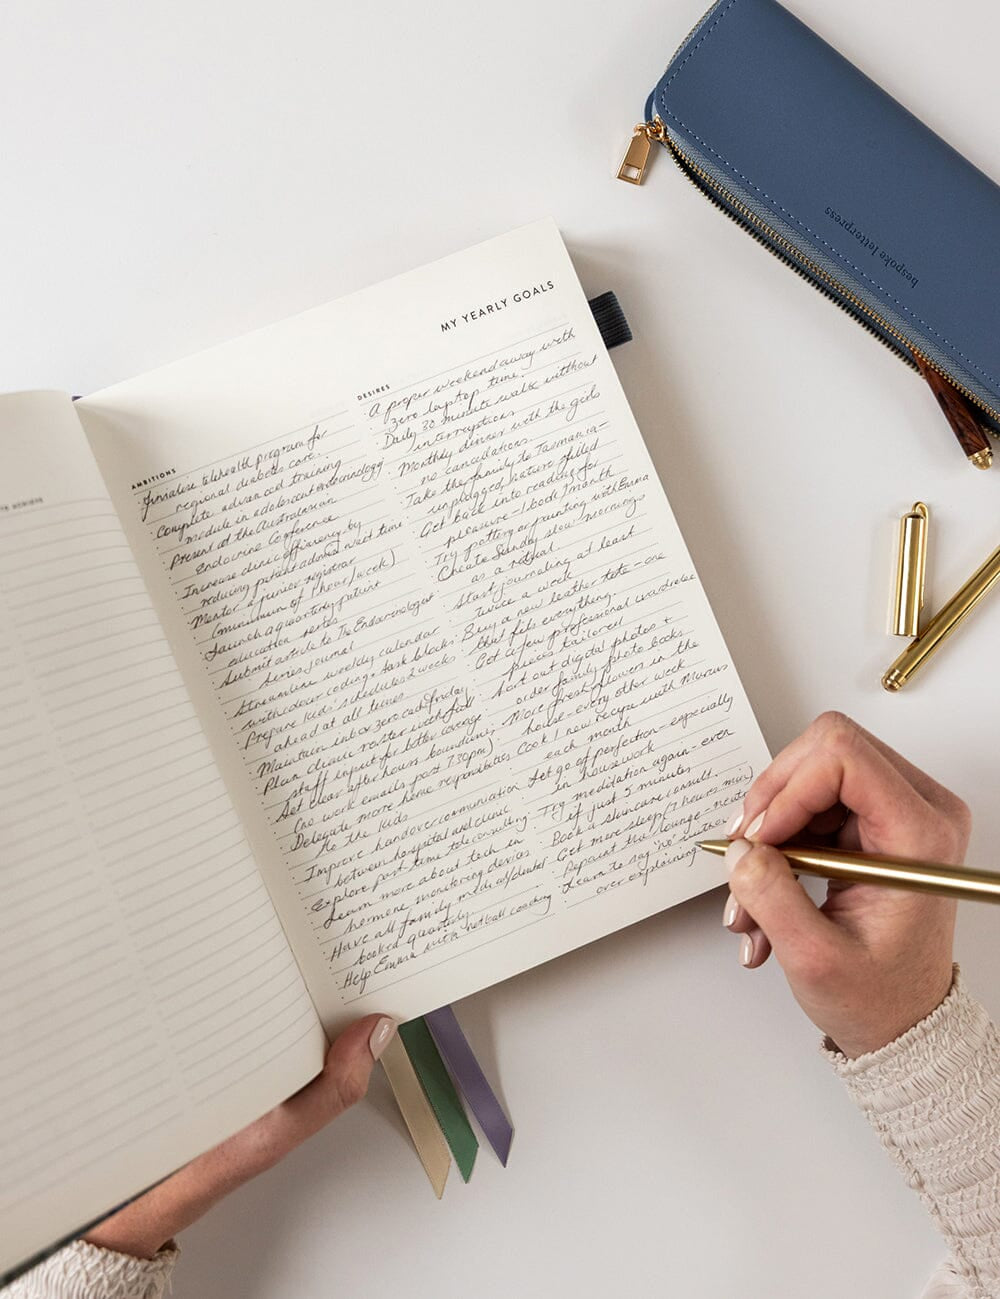 MY YEARLY GOALS
AMBITIONS
Finalise telehealth program for
regional diabetes care.
Complete advanced training
module in adolescent endocrinology
Present at the Australasian
Endocrine Conference
Increase clinic efficiency by
reducing patient admin wait time
Mentor a junior registrar
(minimum of 1 hour/week)
Launch a quarterly patient
education series
Submit article to The Endocrinologist
Times journal
Streamline weekly calendar
with colour coding + task blocks
Prepare kids' schedules 2 weeks
ahead at all times
Maintain inbox zero each Friday
Plan clinic roster with full
staff input for better coverage
Set clear after hours boundaries
(no work emails past 7.30pm)
Delegate more home responsibilities
to the kids
Improve handover communication
between hospital and clinic
Explore part-time teleconsulting
Learn more about tech in
hormone monitoring devices
Have all family medical/dental
booked quarterly
Help Emma with netball coaching
DESIRES
A proper weekend away with
zero laptop time.
Daily 30 minute walks without
interruptions
Monthly dinner with the girls
no cancellations.
Take the family to Tasmania-
unplugged, nature filled
Get back into reading for
pleasure - 1 book/month
Try pottery or painting with Emma
Create Sunday slow mornings
as a ritual
Start journaling at least
twice a week
Buy a new leather tote - one
that fits everything.
Get a few professional wardrobe
pieces tailored
Sort out digital photos +
order family photo books
More fresh flowers in the
house - every other week
Cook 1 new recipe with Marcus
each month
Let go of perfection - especially
in housework
Try meditation again - even
if just 5 minutes
Book a skincare consult
Get more sleep (7 hours min)
Repaint the lounge
Learn to say 'no' without
over explaining
bespoke letterpress